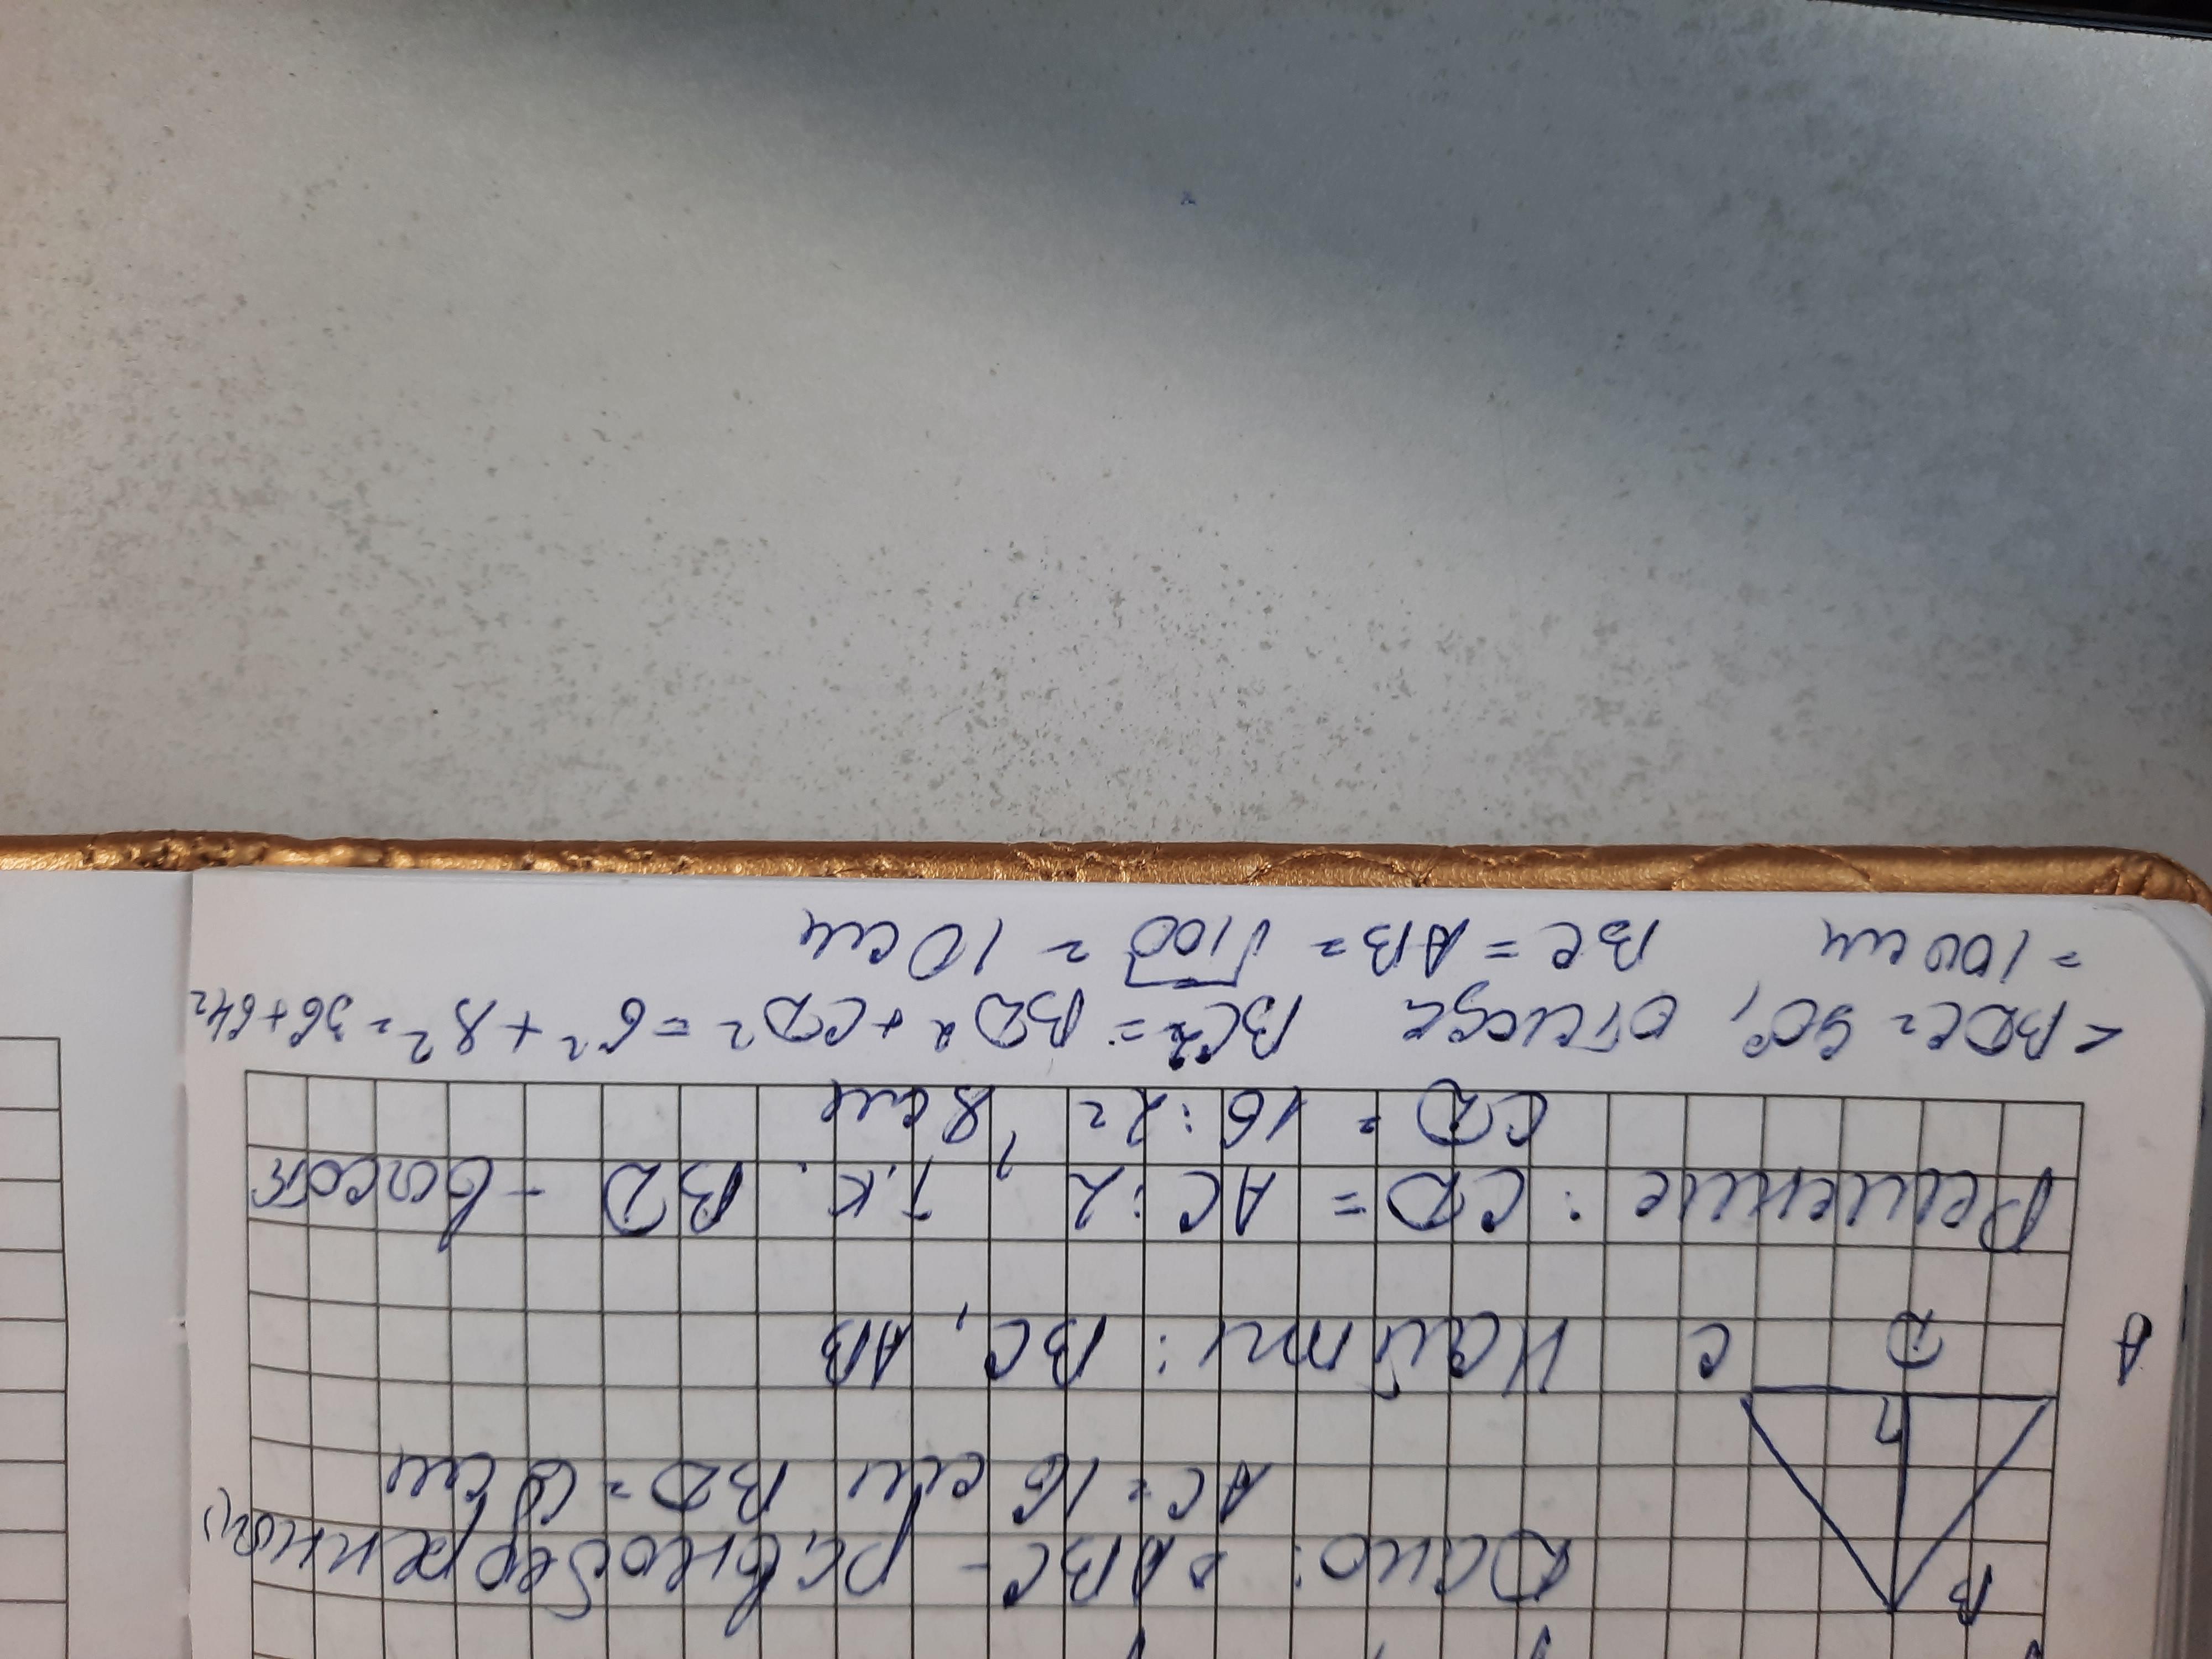 B
Дано: ▵ABC - равнобедренный
AC = 16 см BD = 6 см
A D C Найти: BC, AB
Решение: CD = AC:2, т.к. BD - высота
CD = 16:2 = 8 см
<BDC = 90°, отсюда BC² = BD² + CD² = 6² + 8² = 36+64=
=100 см BC = AB = √100 = 10 см